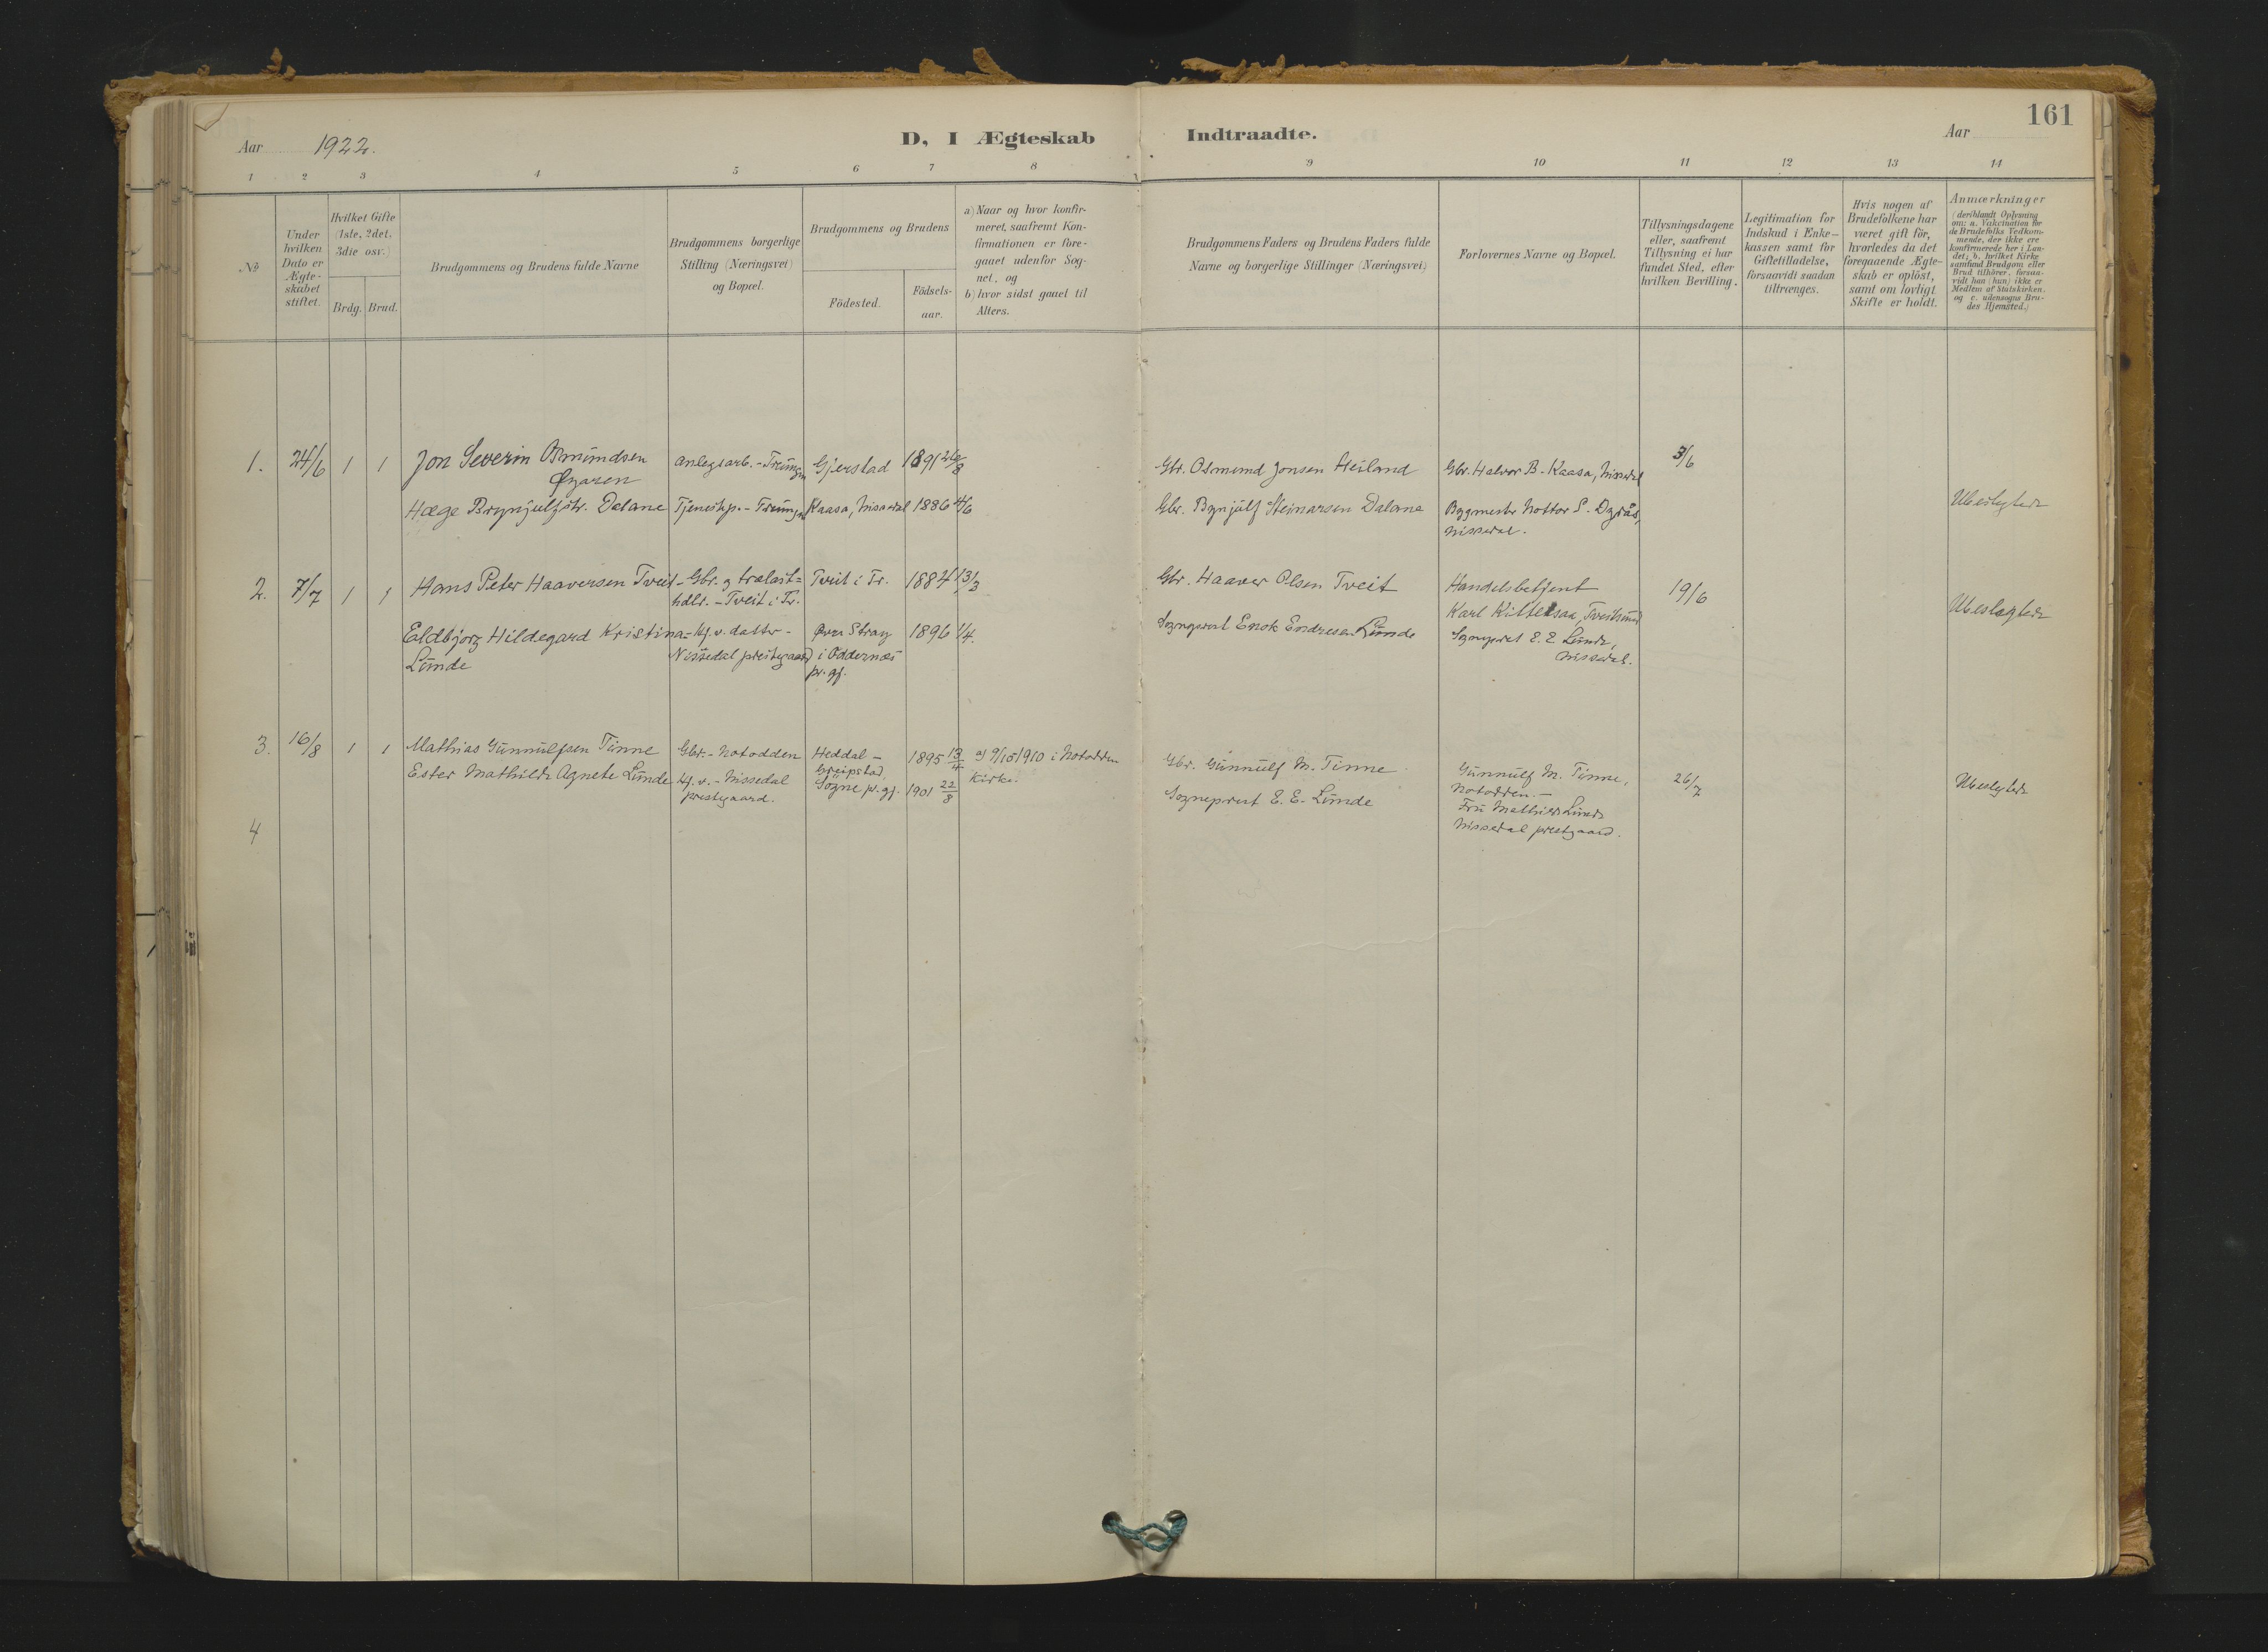 161
Aar 1922.
D, I Ægteskab Indtraadte.
Aar
1 2 3 4 5 6 7 8 9 10 11 12 13 14
No
Under hvilken Dato er Ægte-skabet stiftet.
Hvilket Gifte (1ste, 2det, 3die osv.)
Brdg. Brud.
Brudgommens og Brudens fulde Navne
Brudgommens borgerlige Stilling (Næringsvei) og Bopæl.
Brudgommens og Brudens
Födested.
Födsels-aar.
a) Naar og hvor konfir-meret, saafremt Kon-firmationen er fore-gaaet udenfor Sog-net, og
b) hvor sidst gaaet til Alters.
Brudgommens Faders og Brudens Faders fulde Navne og borgerlige Stillinger (Næringsvei)
Forlovernes Navne og Bopæl.
Tillysningsdagene eller, saafremt Tillysning ei har fundet Sted, efter hvilken Bevilling.
Legitimation for Indskud i Enke-kassen samt for Giftetilladelse, forsaavidt saadan tiltrænges.
Hvis nogen af Brudefolkene har været gift för, hvorledes da det foregaaende Ægte-skab er oplöst, samt om lovligt Skifte er holdt.
Anmærkninger
(deriblandt Oplysning om: a. Vakcination for de Brudefolks Vedkom-mende, der ikke ere konfirmerede her i Lan-det; b. hvilket Kirke-samfund Brudgom eller Brud tilhörer, forsaa-vidt han (hun) ikke er Medlem af Statskirken. og c. udensogns Bru-des Hjemsted.)
1. 24/6 1 1 Jon Severin Osmundsen
Anlegsarb. - Treungen Gjerstad 1891 26/8
Gbr. Osmund Jonsen Heiland
Gbr. Halvor B. Kaasa, Nissedal
3/6
Hæge Brynjulfstr. Dalane
Tjenestp. - Treungen Kaasa, Nissedal 1886 4/6
Gbr. Bynjulf Steinarsen Dalane
Bygmester Nottov S. Dgrås,
Nissedal.
Ubeslegtede
2. 7/7 1 1 Hans Peter Haaversen Tveit
- Gbr. og trælast=
hdlr. - Tveit i Tr.
Tveit i Tr. 1884 13/3
Gbr. Haaver Olsen Tveit
Handelsbetjent
Karl Kittelsaa, Tveitsund
19/6
Ubeslegtede
Eldbjorg Hildegard Kristina
Lunde
- Hj.v. datter -
Nissedal prestegaard
Øvre Stray
i Oddernes
pr.gj.
1896 1/4.
Sogneprest Enok Endresen Lunde
Sogneprest E. E. Lunde,
Nissedal.
3. 16/8 1 1 Mathias Gunnulfsen Tinne
Gbr. - Notodden
Heddal -
1895 13/4
a) 9/10 1910 i Notodden
Kirke.
Gbr. Gunnulf M. Tinne
Gunnulf M. Tinne,
Notodden. -
26/7
Ubeslegtede
Ester Mathilde Agnete Lunde
Hj.v. - Nissedal
prestgaard.
Greipstad,
Søgne pr.gj.
1901 22/8
Sogneprest E. E. Lunde
Fru Mathilde Lunde
Nissedal prestgaard.
4